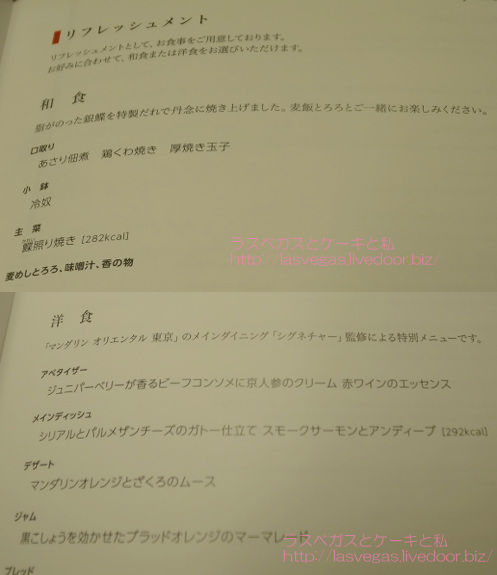 リフレッシュメント
リフレッシュメントとして、お食事をご用意しております。
お好みに合わせて、和食または洋食をお選びいただけます。
和 食
脂がのった銀鰈を特製だれで丹念に焼き上げました。麦飯とろろとご一緒にお楽しみください。
口取り
あさり佃煮 鶏くわ焼き 厚焼き玉子
小 鉢
冷奴
主 菜
鰈照り焼き [282kcal]
麦めしとろろ、味噌汁、香の物
ラスベガスとケーキと私
http://lasvegas.livedoor.biz/
洋 食
「マンダリン オリエンタル 東京」のメインダイニング「シグネチャー」監修による特別メニューです。
アペタイザー
ジュニパーベリーが香るビーフコンソメに京人参のクリーム 赤ワインのエッセンス
メインディッシュ
シリアルとパルメザンチーズのガトー仕立て スモークサーモンとアンディーブ [292kcal]
デザート
マンダリンオレンジとざくろのムース
ジャム
黒こしょうを効かせたブラッドオレンジのマーマレード
ブレッド
ラスベガスとケーキと私
http://lasvegas.livedoor.biz/